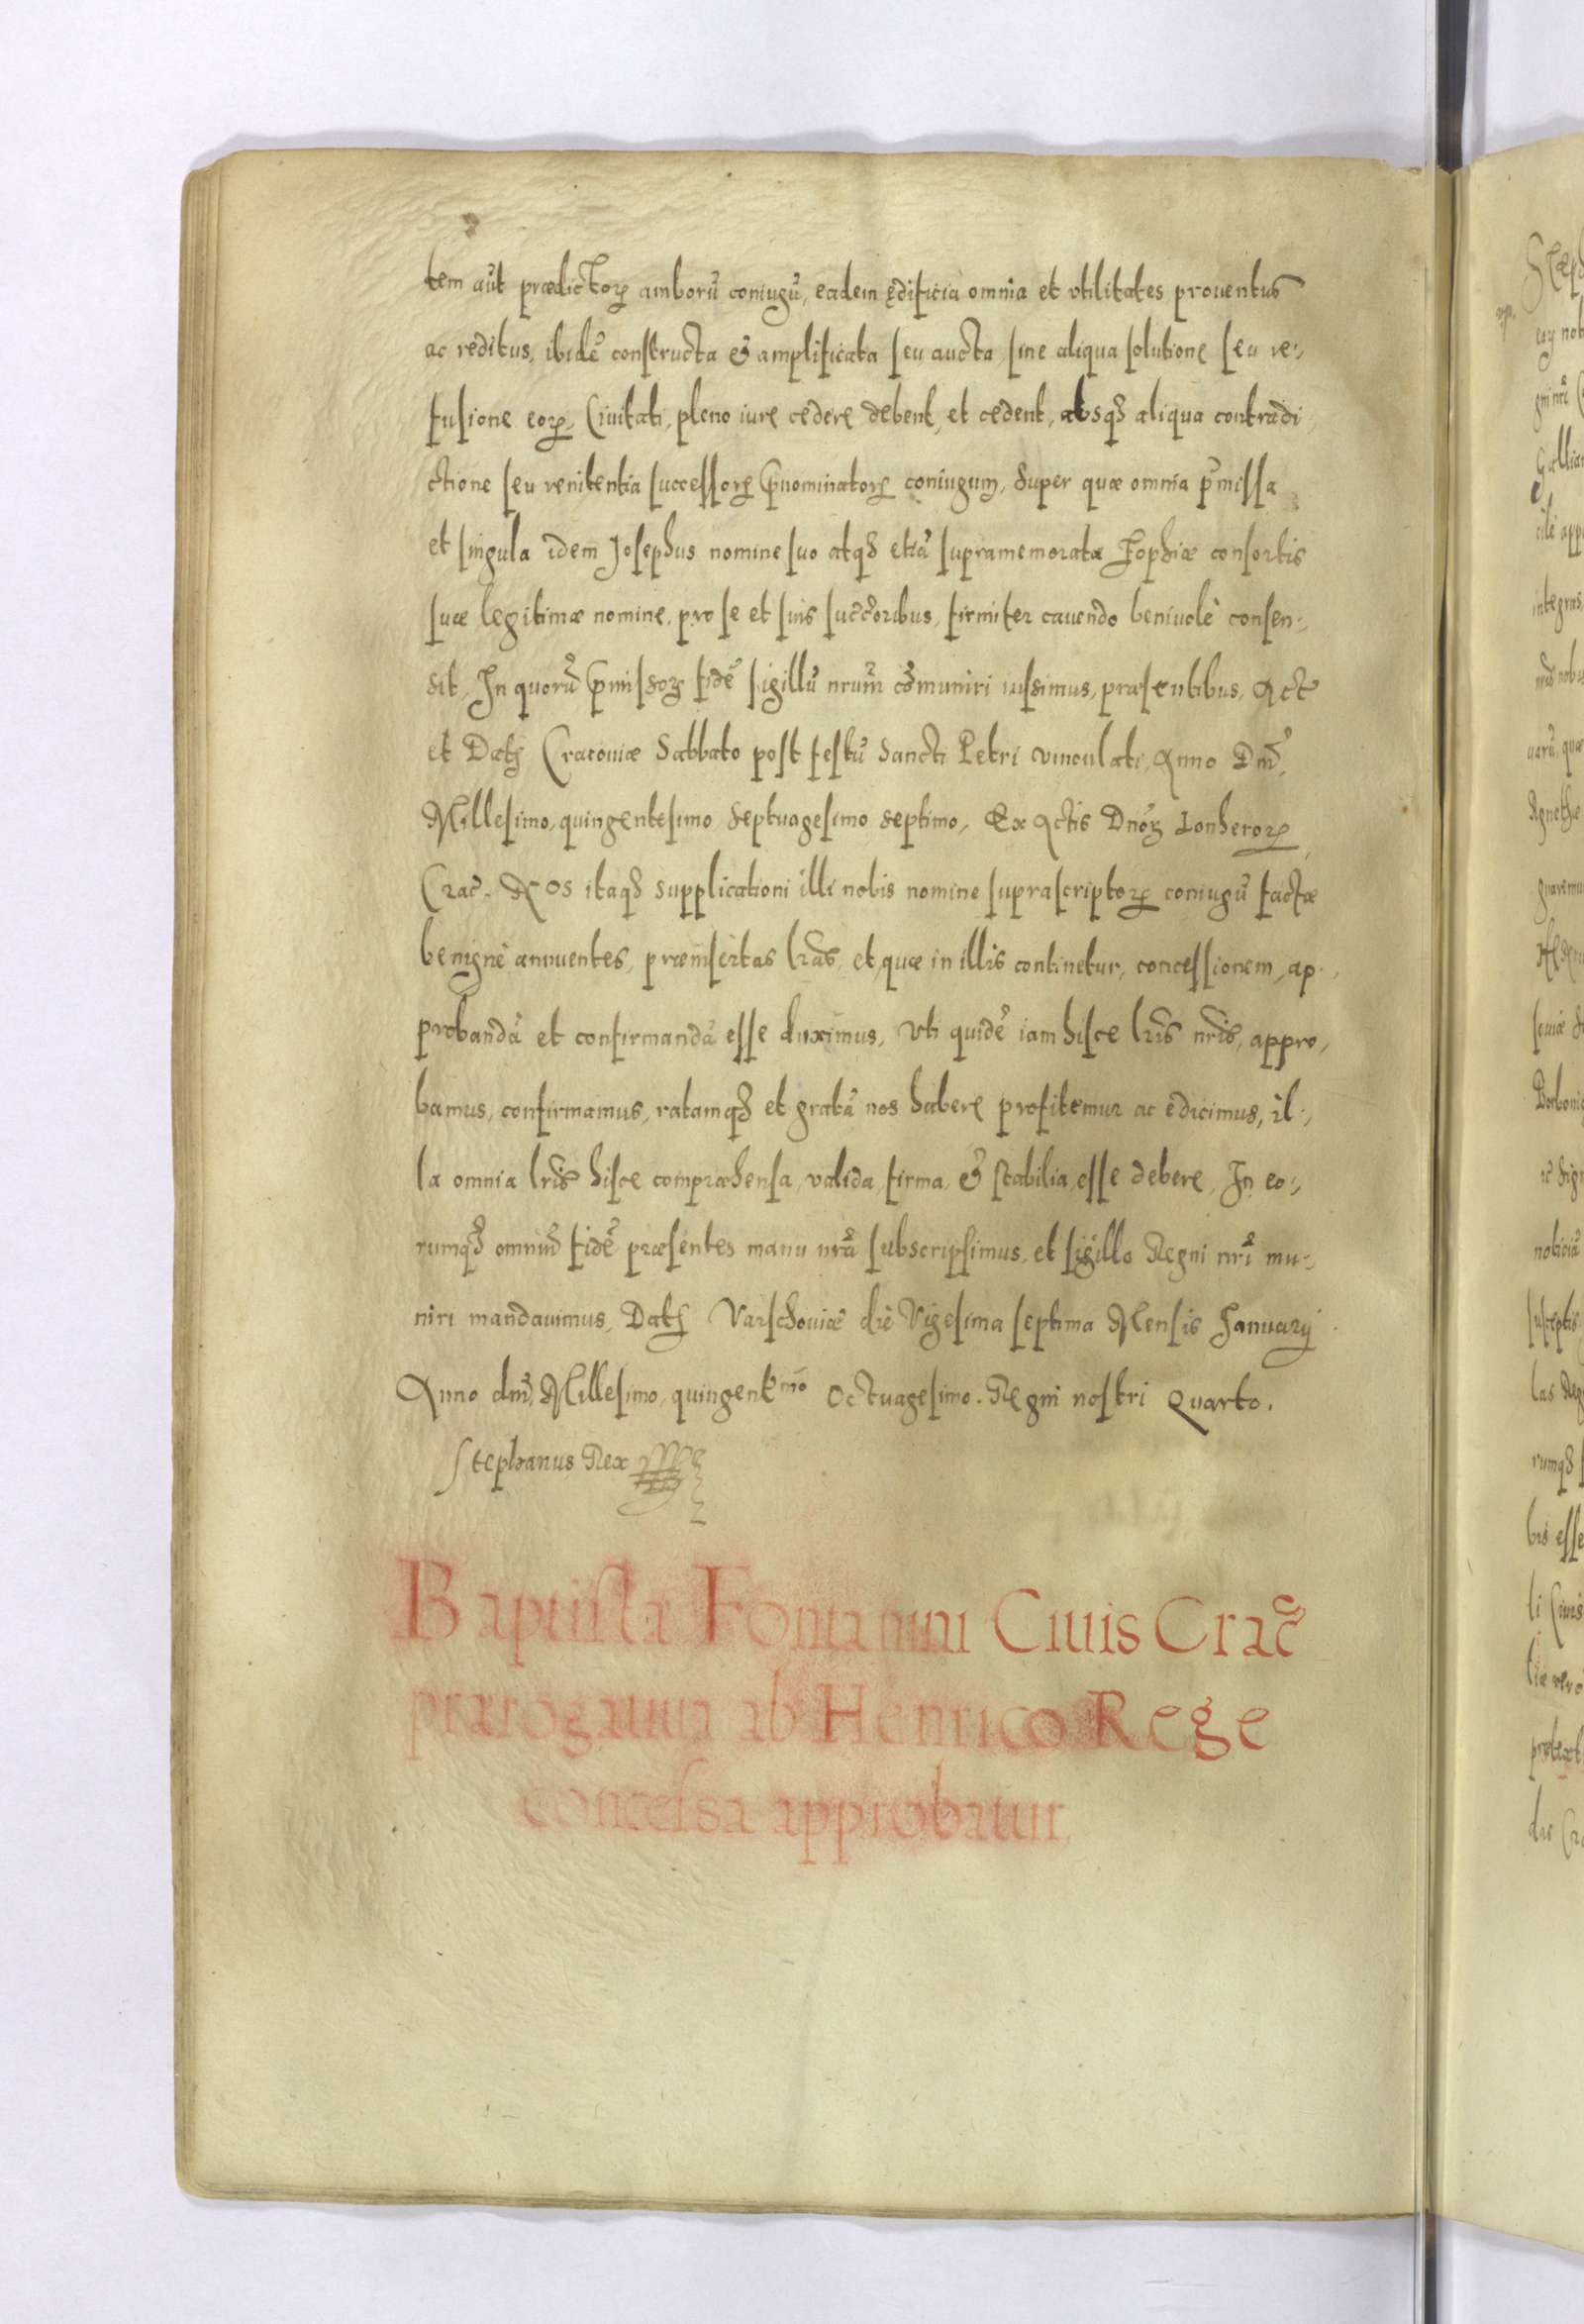 tem aūt prædictoꝝ amborū coniugū, eadem ędificia omnia et vtilitates prouentus
ac reditus, ibidē constructa & amplificata seu aucta sine aliqua solutione seu re-,
fusione eoꝝ, Ciuitati, pleno iure cedere debent, et cedent, absq́ȝ aliqua contradi,
ctione seu renitentia successoꝝ p̄nominatoꝝ coniugum, Super quæ omnia p̄missa
et singula idem Josephus nomine suo atqȝ etiā supramemoratæ Zophiæ consortis
suæ legitimæ nomine, pro se et suis succ̄oribus, firmiter cauendo beniuolè consen-,
sit, In quorū p̄missoꝝ fidē sigillū nr̄um com̄uniri iussimus, præsentibus, Act̄
et Datȝ Cracouiæ Sabbato post festū Sancti Petri vinculati, Anno Dn̄i,
Millesimo, quingentesimo Septuagesimo septimo, Ex Actis Dn̄oꝝ Lonheroꝝ
Crac̄. Nos itaqȝ supplicationi illi nobis nomine suprascriptoꝝ coniugū factæ
benignè annuentes, præinsertas lr̄as, et quæ in illis continetur, concessionem, ap-,
probandā et confirmandā esse duximus, Vti quidē iam hisce lr̄is nr̄is, appro,
bamus, confirmamus, ratamqȝ et gratā nos habere profitemur ac edicimus, il-,
la omnia lr̄is hisce compræhensa, valida, firma, & stabilia, esse debere, In eo-,
rumqȝ omniū fidē præsentes manu nr̄a subscripsimus, et sigillo Regni nr̄i mu-,
niri mandauimus, Datȝ Varschouiæ die Vigesima septima Mensis Januarij
Anno dn̄i, Millesimo, quingentᵐᵒ Octuagesimo. Regni nostri Quarto.
Stephanus Rex
Baptistæ Fontanini Ciuis Crac̄
prærogatiua ab Henrico Rege
concessa approbatur